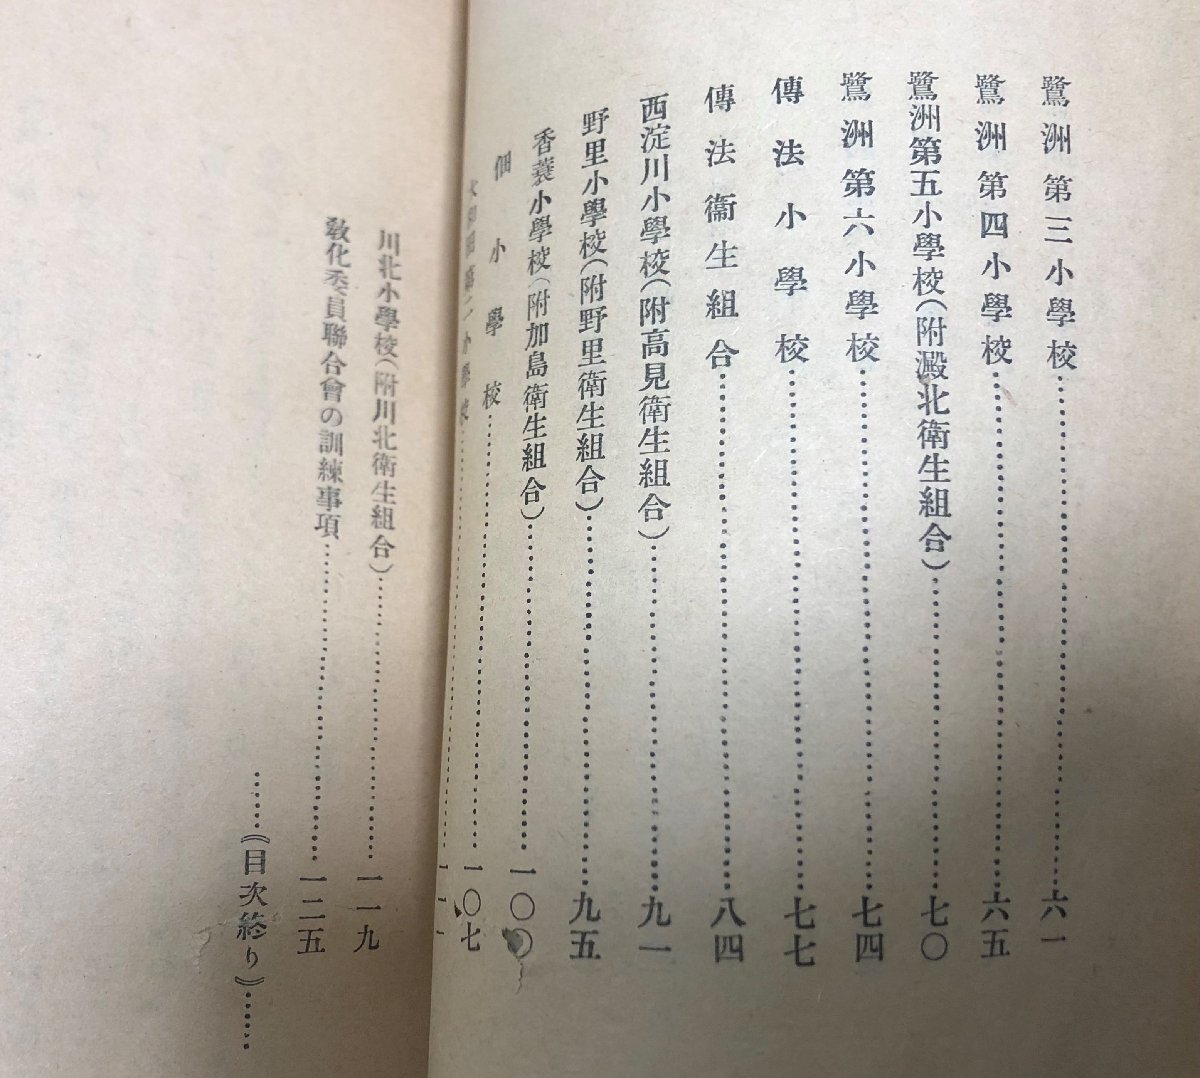 鷺洲第三小學校……六一
鷺洲第四小學校……六五
鷺洲第五小學校(附澱北衛生組合)……七〇
鷺洲第六小學校……七四
傳法小學校……七七
傳法衞生組合……八四
西淀川小學校(附高見衛生組合)……九一
野里小學校(附野里衛生組合)……九五
香蓑小學校(附加島衛生組合)……一〇〇
佃小學校……一〇七
川北小學校(附川北衛生組合)……一一九
敎化委員聯合會の訓練事項……一二五
……《目次終り》……